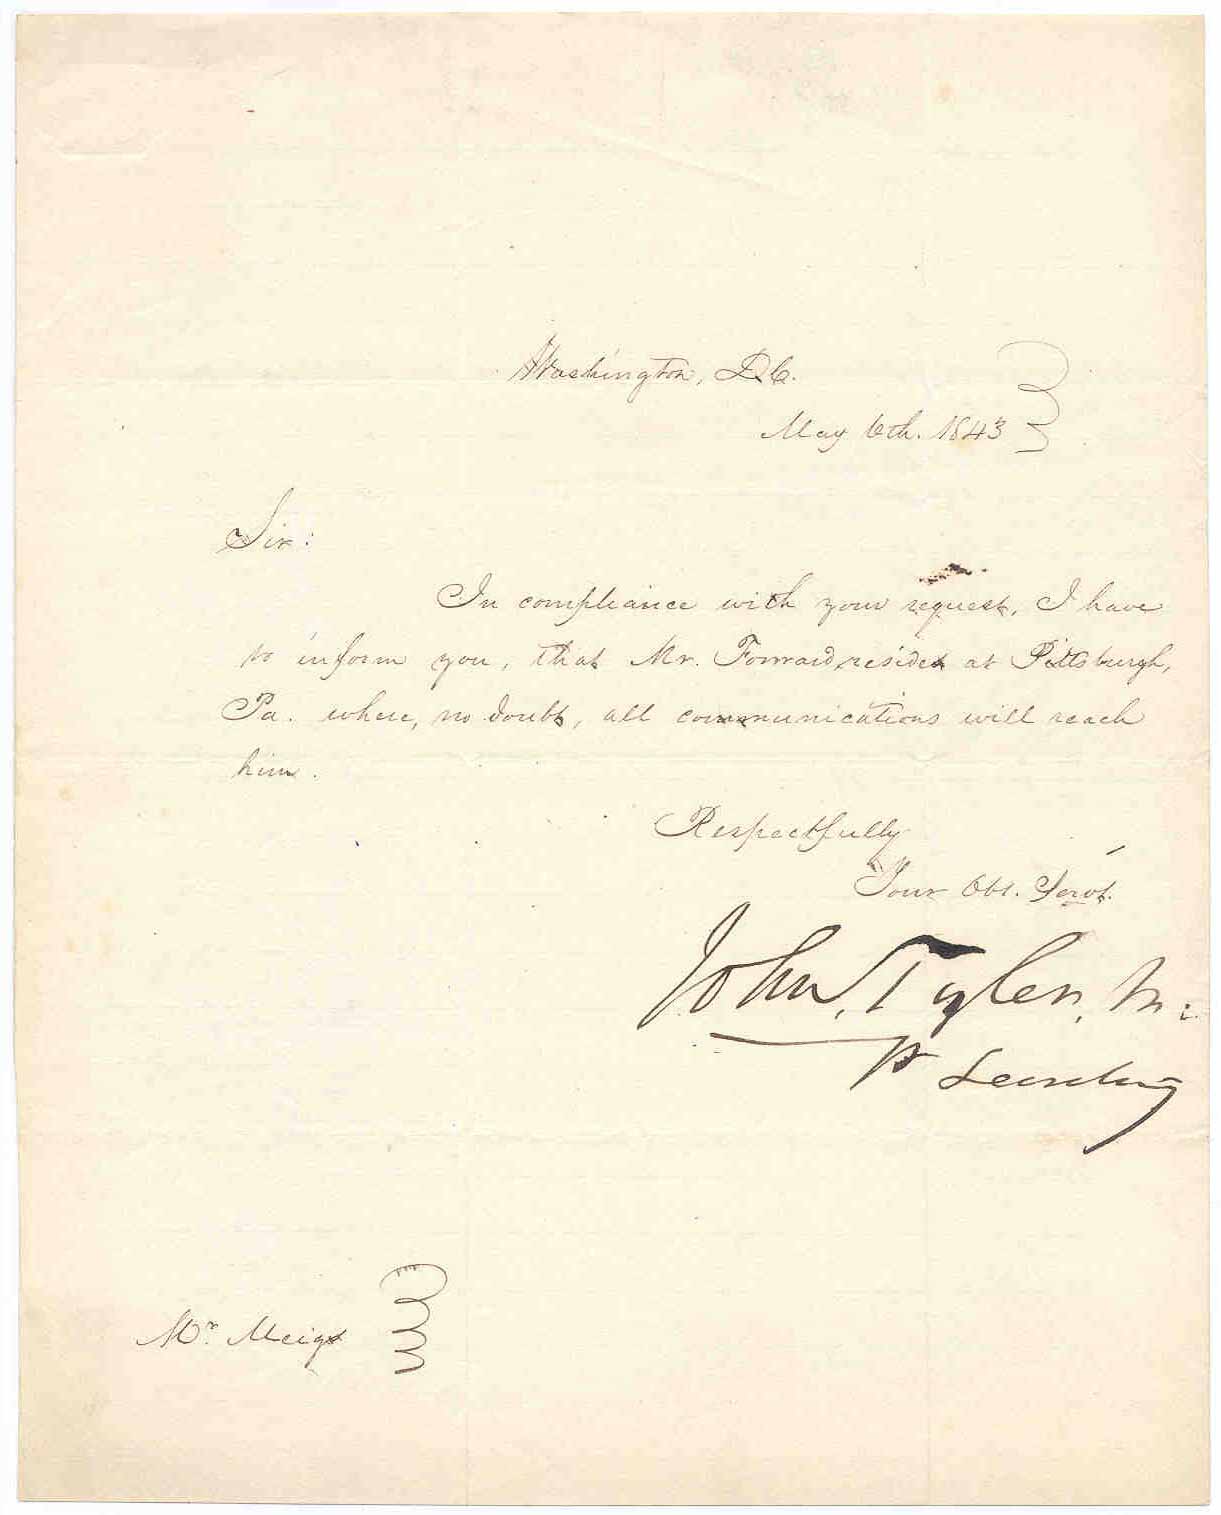 Washington, D.C.
May 6th. 1843
Sir:
In compliance with your request, I have
to inform you, that Mr. Forward, resides at Pittsburgh,
Pa. where, no doubt, all communications will reach
him.
Respectfully
Your Obt. Servt.
John, Tyler, Jr.
P Secretary
Mr. Meigs